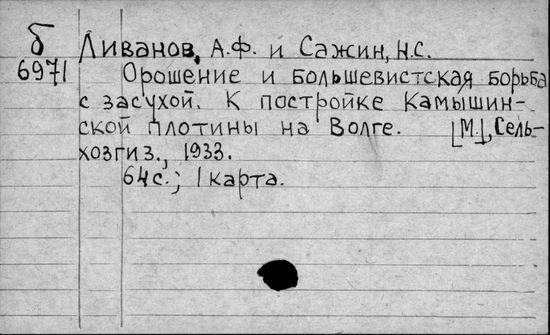 б Ливанов, А.Ф. и Сажин, Н.С.
6971 Орошение и большевистская борьба
с засухой. К постройке Камышин-
ской плотины на Волге. [М.], Сель-
хозгиз., 1933.
64 с.; 1 карта.